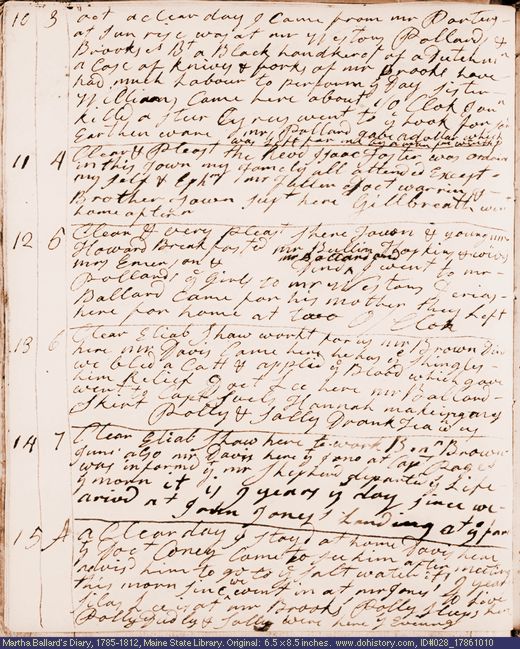 10 3 oct a clear day I Came from mr Porters
at sun rise was at mr Westons Pollards &
Brookses Bt a Black handkerf of a Dutchman
a Case of knives & forks of mr Brooks have
had much Labour to perform ye Day. sister
Williams Came here about 10 Clok Jona
killd a steer Cyrus went to ye hook for
Earthen ware. mr Pollard gave a dollar which
was left for me by
11 4 Clear & Pleast the Revd Isaac Foster was ordaind
in this Town my famely all attended Except
my self & Ephm mr
Brother Town supt here Gillbreath went
home after
12 5 Clear & very pleast there Town & young mr
Howard Breakfasted mr Bullin Hopkins & wives
mrs Emerson & mr Ballard and I went to mr
Pollards ye girls to mr Westons
Ballard Came for his mother they Left
here for home at two O Clok
13 6 Clear Eliab Shaw workt for us mr Brown Din
here mr Davis Came here he has ye shingles
we bled a Catt & applied ye Blood which gave
him Relief Doct Coe here mr Ballard
went to Capt Sewls Hannah making my
skirt Polly & Sally Drank Tea w
14 7 Clear Eliab Shaw here to work Bn Brown
Junr also mr Davis here Jona at mr Pages
was informd of mr Shepherd departed ys Life
ye morn it is 9 years ys day since we
arivd at John Jones's Landing at ye
15 A a Clear day I stayd at home Davis here
ye Doct Coney Came to see him after meeting
Advisd him to go to ye salt water it is 9 years
this morn since we went in at mr Jones to live
silas Lee is at mr Brooks Polly sleeps here
Polly Dudly & Sally were here ys Evening
Martha Ballard's Diary, 1785-1812, Maine State Library. Original: 6.5 x 8.5 inches. www.dohistory.com, ID#028_17861010